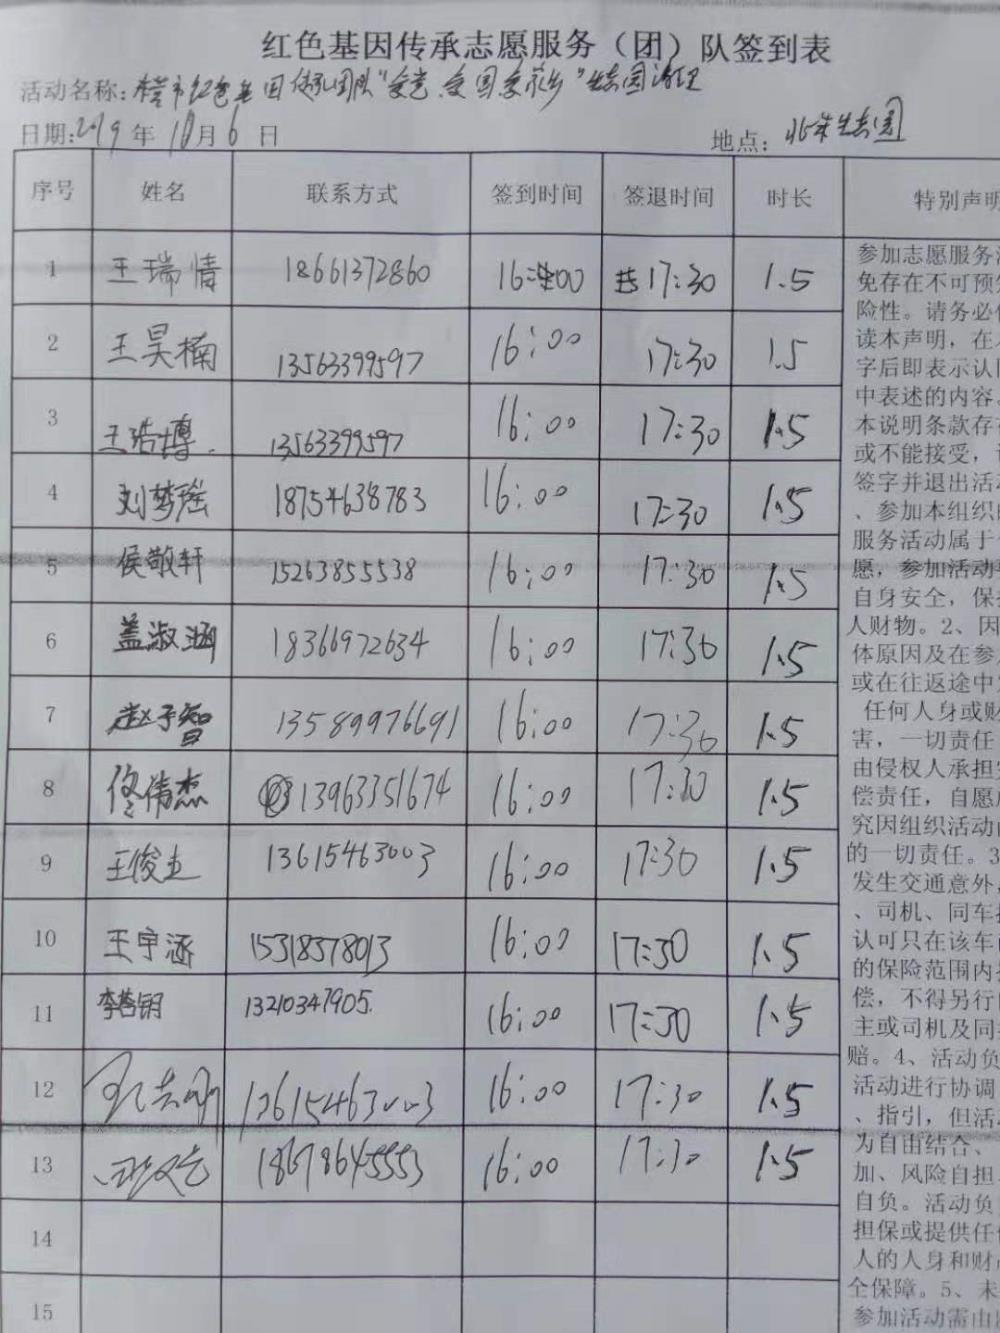 红色基因传承志愿服务（团）队签到表
活动名称：市红色基因传承团队“爱党、爱国、爱家乡”生态园
日期：2019年10月6日
地点：生态园
序号 姓名 联系方式 签到时间 签退时间 时长 特别声明
1 王瑞情 18661372860 16:00 17:30 1.5
2 王昊楠 13563399597 16:00 17:30 1.5
3 王浩博 13563399597 16:00 17:30 1.5
4 刘梦瑶 18754638783 16:00 17:30 1.5
5 侯敬轩 15263855538 16:00 17:30 1.5
6 盖淑涵 18366972634 16:00 17:30 1.5
7 赵子智 13589976691 16:00 17:30 1.5
8 佟伟杰 13963351674 16:00 17:30 1.5
9 王俊 13615463003 16:00 17:30 1.5
10 王宇涵 15318578013 16:00 17:30 1.5
11 李 钥 13210347905. 16:00 17:30 1.5
12 13615463003 16:00 17:30 1.5
13 18678645553 16:00 17:30 1.5
14
15
参加志愿服务
免存在不可预
险性。请务必
读本声明，在
字后即表示认
中表述的内容
本说明条款存
或不能接受，
签字并退出活
、参加本组织
服务活动属于
愿，参加活动
自身安全，保
人财物。2、因
体原因及在参
或在往返途中
任何人身或财
害，一切责任
由侵权人承担
偿责任，自愿
究因组织活动
的一切责任。3
发生交通意外
、司机、同车
认可只在该车
的保险范围内
偿，不得另行
主或司机及同
赔。4、活动负
活动进行协调
、指引，但活
为自由结合、
加、风险自担
自负。活动负
担保或提供任
人的人身和财
全保障。5、未
参加活动需由